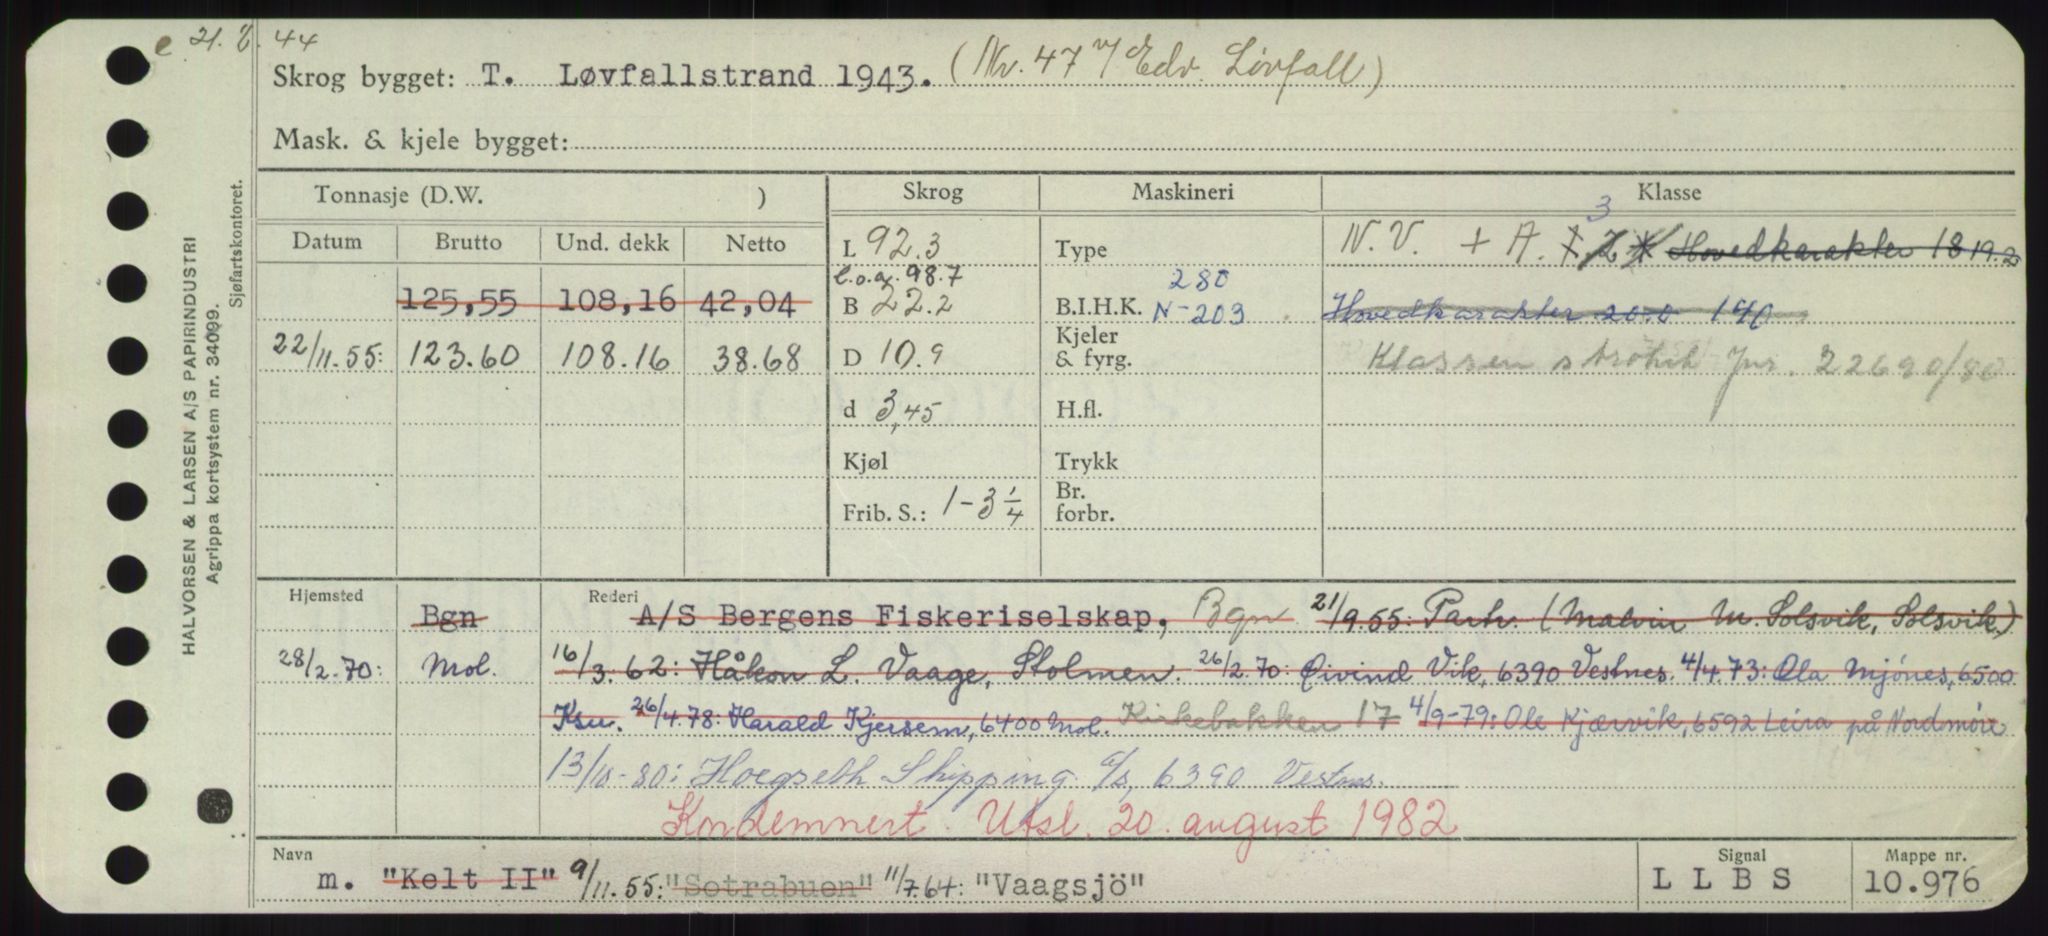 21.8.44
Skrog bygget: T. Løvfallstrand 1943. (Nr. 47 v/ Edv. Løvfall)
Mask. & kjele bygget:
HALVORSEN & LARSEN A/S PAPIRINDUSTRI
Agrippa kortsystem nr. 34099.
Sjøfartskontoret.
Tonnasje (D.W. ) Skrog Maskineri Klasse
Datum Brutto Und. dekk Netto
L 92.3 Type N.V. + A. 3 Hovedkarakter 18
l.o.a. 98.7
125,55 108,16 42,04 B 22.2 B.I.H.K. 280 N-203 Hovedkarakter 20.0 140
22/11.55: 123.60 108.16 38.68 D 10.9 Kjeler & fyrg. Klassen strøket Jnr. 22690/80
d 3,45 H.fl.
Kjøl Trykk
Frib. S.: 1-3 1/4 Br. forbr.
Hjemsted Bgn Rederi A/S Bergens Fiskeriselskap, Bgn 21/9.55: Parh. (Malvin M. Solsvik, Solsvik.)
28/2.70: Mol. 16/3.62: Håkon L. Vaage, Stolmen. 26/2.70: Øivind Vik, 6390 Vestnes. 4/4.73: Ola Mjónes, 6500
Ksu. 26/4.78: Harald Kjersem, 6400 Mol. Kirkebakken 17 4/9-79: Ole Kjærvik, 6592 Leira på Nordmøre
13/10-80: Hoegseth Shipping a/s, 6390 Vestnes.
Kondemnert. Utsl. 20. august 1982
Navn m. "Kelt II" 9/11.55: "Sotrabuen" 11/7.64: "Vaagsjö" Signal L L B S Mappe nr. 10.976